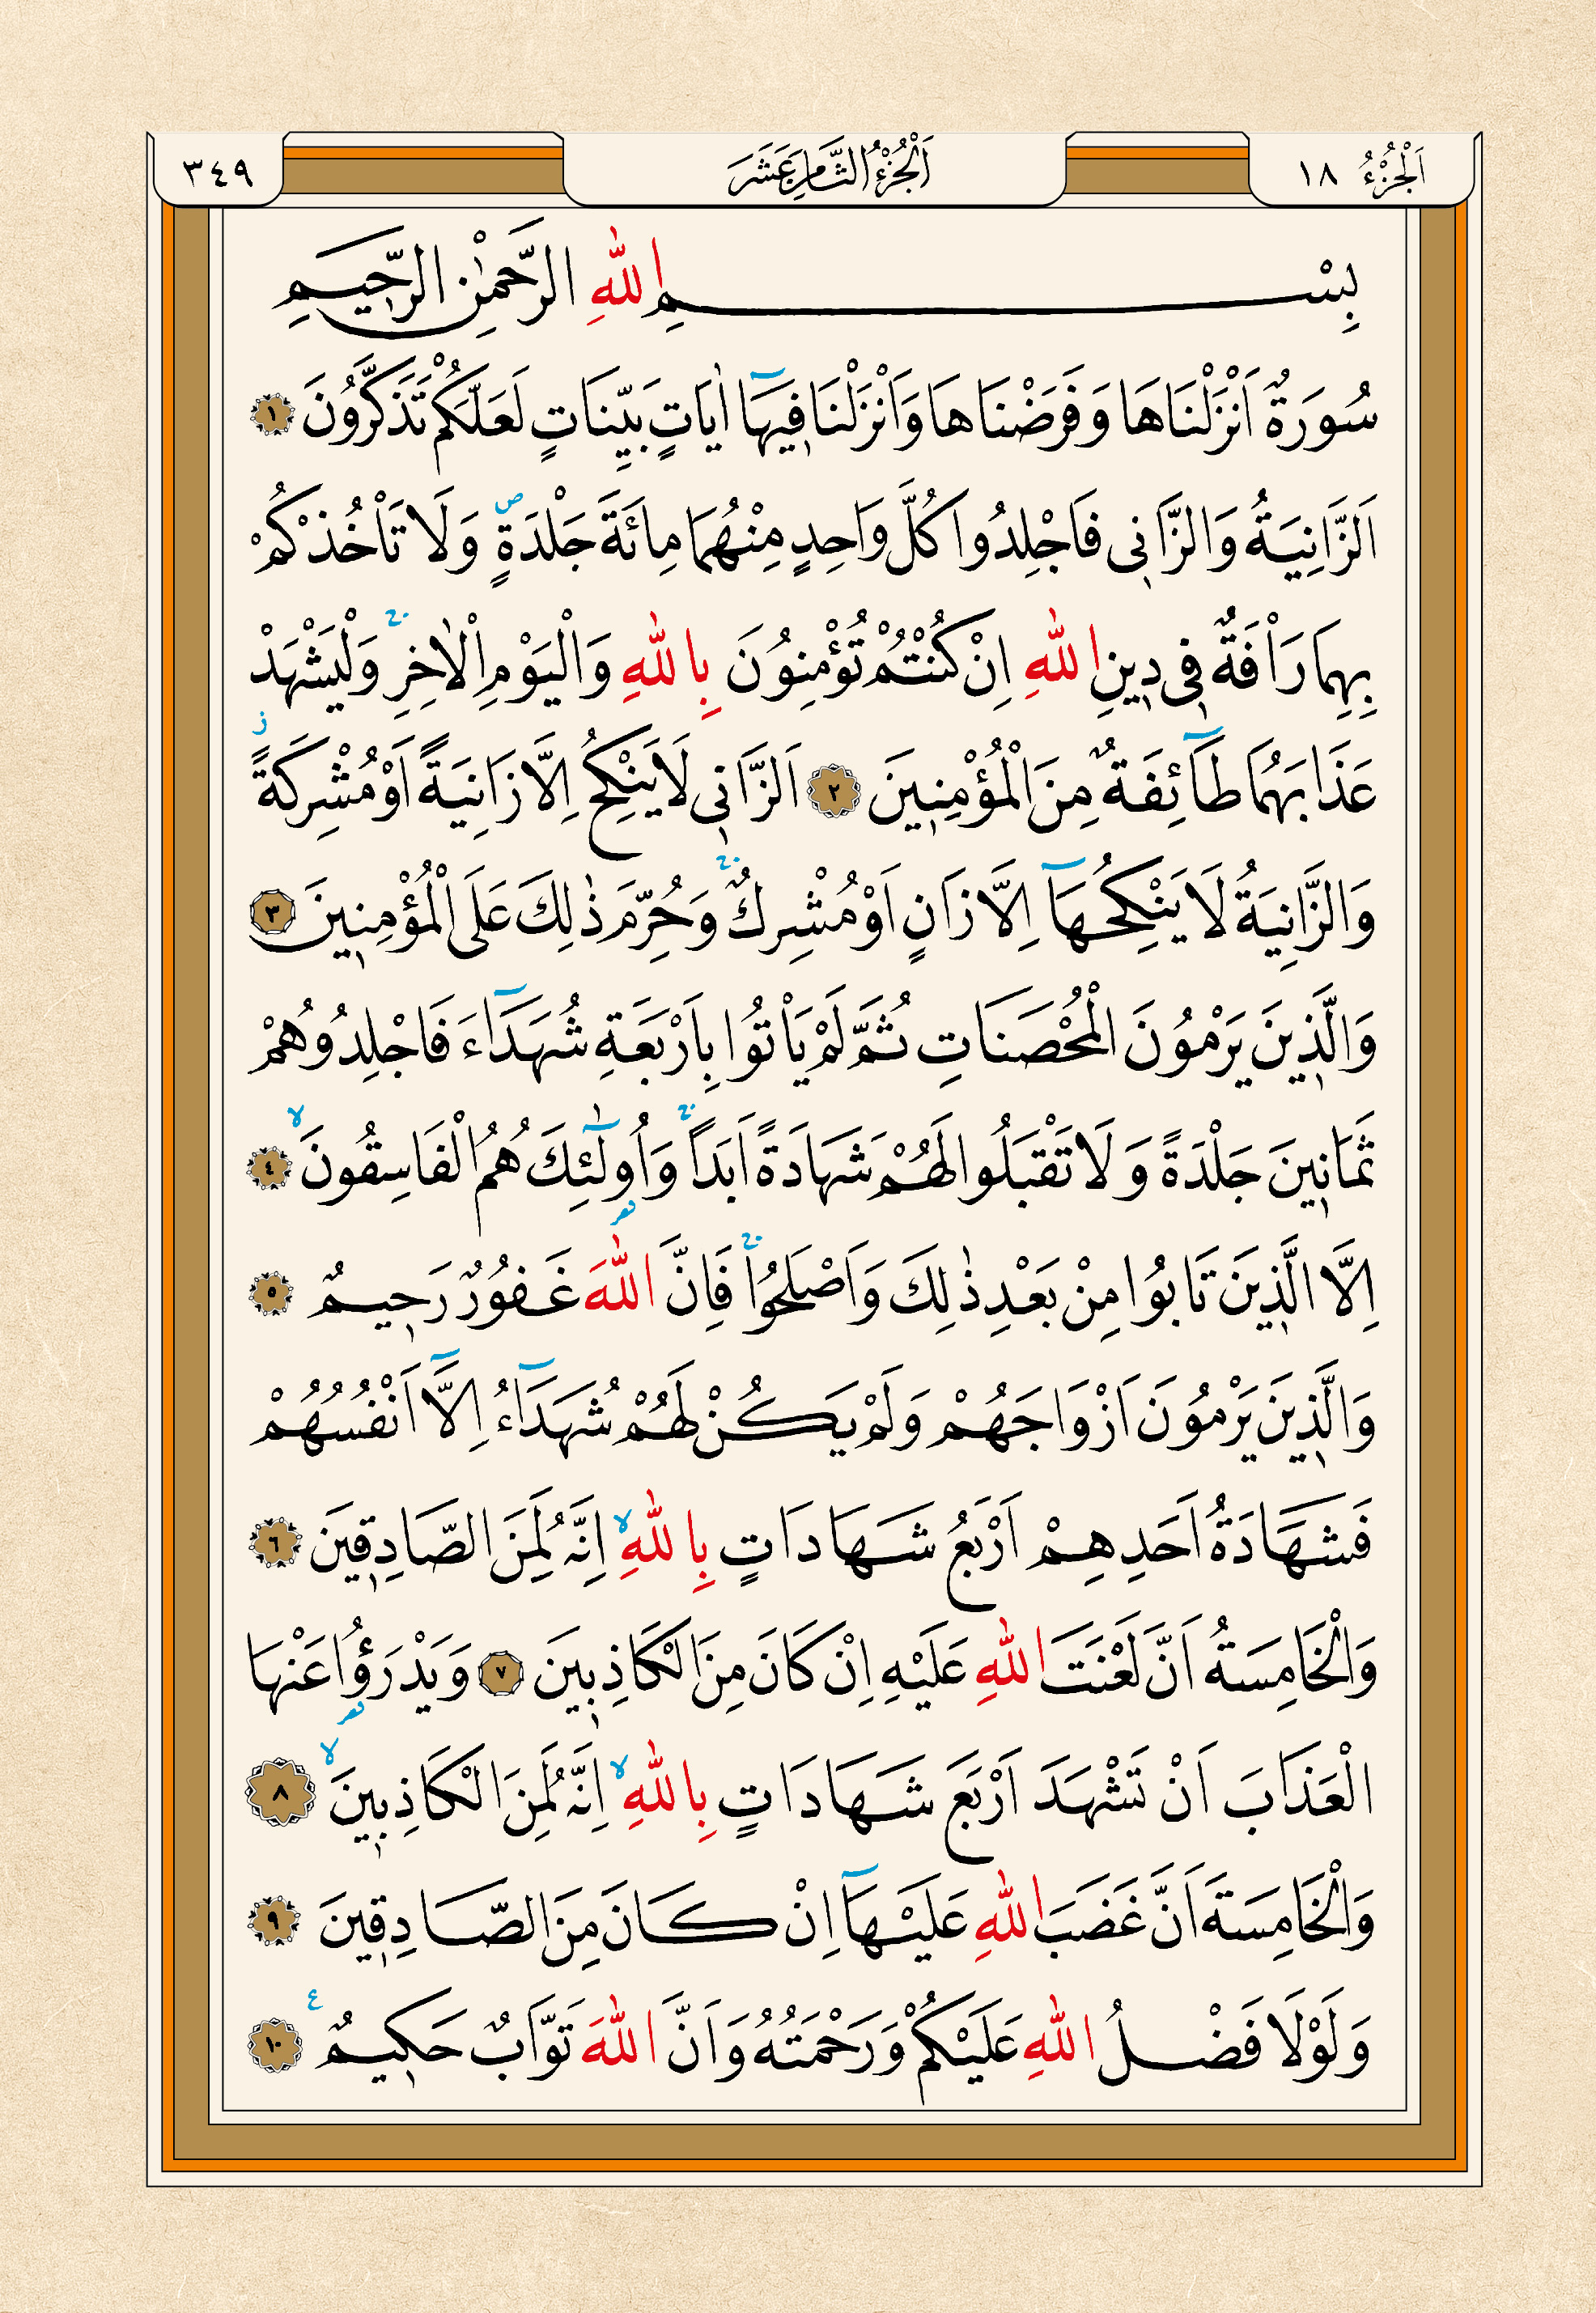 اَلْجُزْءُ ١٨
اَلْجُزْءُ الثَّامِنَ عَشَرَ
٣٤٩
بِسْمِ اللهِ الرَّحْمٰنِ الرَّحِيمِ
سُورَةٌ اَنْزَلْنَاهَا وَفَرَضْنَاهَا وَاَنْزَلْنَا فِيهَٓا اٰيَاتٍ بَيِّنَاتٍ لَعَلَّكُمْ تَذَكَّرُونَ ١
اَلزَّانِيَةُ وَالزَّانِي فَاجْلِدُوا كُلَّ وَاحِدٍ مِنْهُمَا مِائَةَ جَلْدَةٍۖ وَلَا تَأْخُذْكُمْ
بِهِمَا رَأْفَةٌ فِي دِينِ اللهِ اِنْ كُنْتُمْ تُؤْمِنُونَ بِاللهِ وَالْيَوْمِ الْاٰخِرِۚ وَلْيَشْهَدْ
عَذَابَهُمَا طَٓائِفَةٌ مِنَ الْمُؤْمِنِينَ ٢ اَلزَّانِي لَا يَنْكِحُ اِلَّا زَانِيَةً اَوْ مُشْرِكَةًؗ
وَالزَّانِيَةُ لَا يَنْكِحُهَٓا اِلَّا زَانٍ اَوْ مُشْرِكٌۚ وَحُرِّمَ ذٰلِكَ عَلَى الْمُؤْمِنِينَ ٣
وَالَّذِينَ يَرْمُونَ الْمُحْصَنَاتِ ثُمَّ لَمْ يَأْتُوا بِاَرْبَعَةِ شُهَدَٓاءَ فَاجْلِدُوهُمْ
ثَمَانِينَ جَلْدَةً وَلَا تَقْبَلُوا لَهُمْ شَهَادَةً اَبَداًۚ وَاُو۬لٰٓئِكَ هُمُ الْفَاسِقُونَۙ ٤
اِلَّا الَّذِينَ تَابُوا مِنْ بَعْدِ ذٰلِكَ وَاَصْلَحُواۚ فَاِنَّ اللهَ غَفُورٌ رَحِيمٌ ٥
وَالَّذِينَ يَرْمُونَ اَزْوَاجَهُمْ وَلَمْ يَكُنْ لَهُمْ شُهَدَٓاءُ اِلَّٓا اَنْفُسُهُمْ
فَشَهَادَةُ اَحَدِهِمْ اَرْبَعُ شَهَادَاتٍ بِاللهِۙ اِنَّهُ لَمِنَ الصَّادِقِينَ ٦
وَالْخَامِسَةُ اَنَّ لَعْنَتَ اللهِ عَلَيْهِ اِنْ كَانَ مِنَ الْكَاذِبِينَ ٧ وَيَدْرَؤُ۬ا عَنْهَا
الْعَذَابَ اَنْ تَشْهَدَ اَرْبَعَ شَهَادَاتٍ بِاللهِۙ اِنَّهُ لَمِنَ الْكَاذِبِينَۙ ٨
وَالْخَامِسَةَ اَنَّ غَضَبَ اللهِ عَلَيْهَٓا اِنْ كَانَ مِنَ الصَّادِقِينَ ٩
وَلَوْلَا فَضْلُ اللهِ عَلَيْكُمْ وَرَحْمَتُهُ وَاَنَّ اللهَ تَوَّابٌ حَكِيمٌ ع ١٠